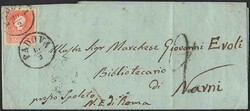 PADOVA
Illustre Sigr Marchese Giovanni Eroli
Bibliotecario di
Narni
presso Spoleto
N.E. di Roma